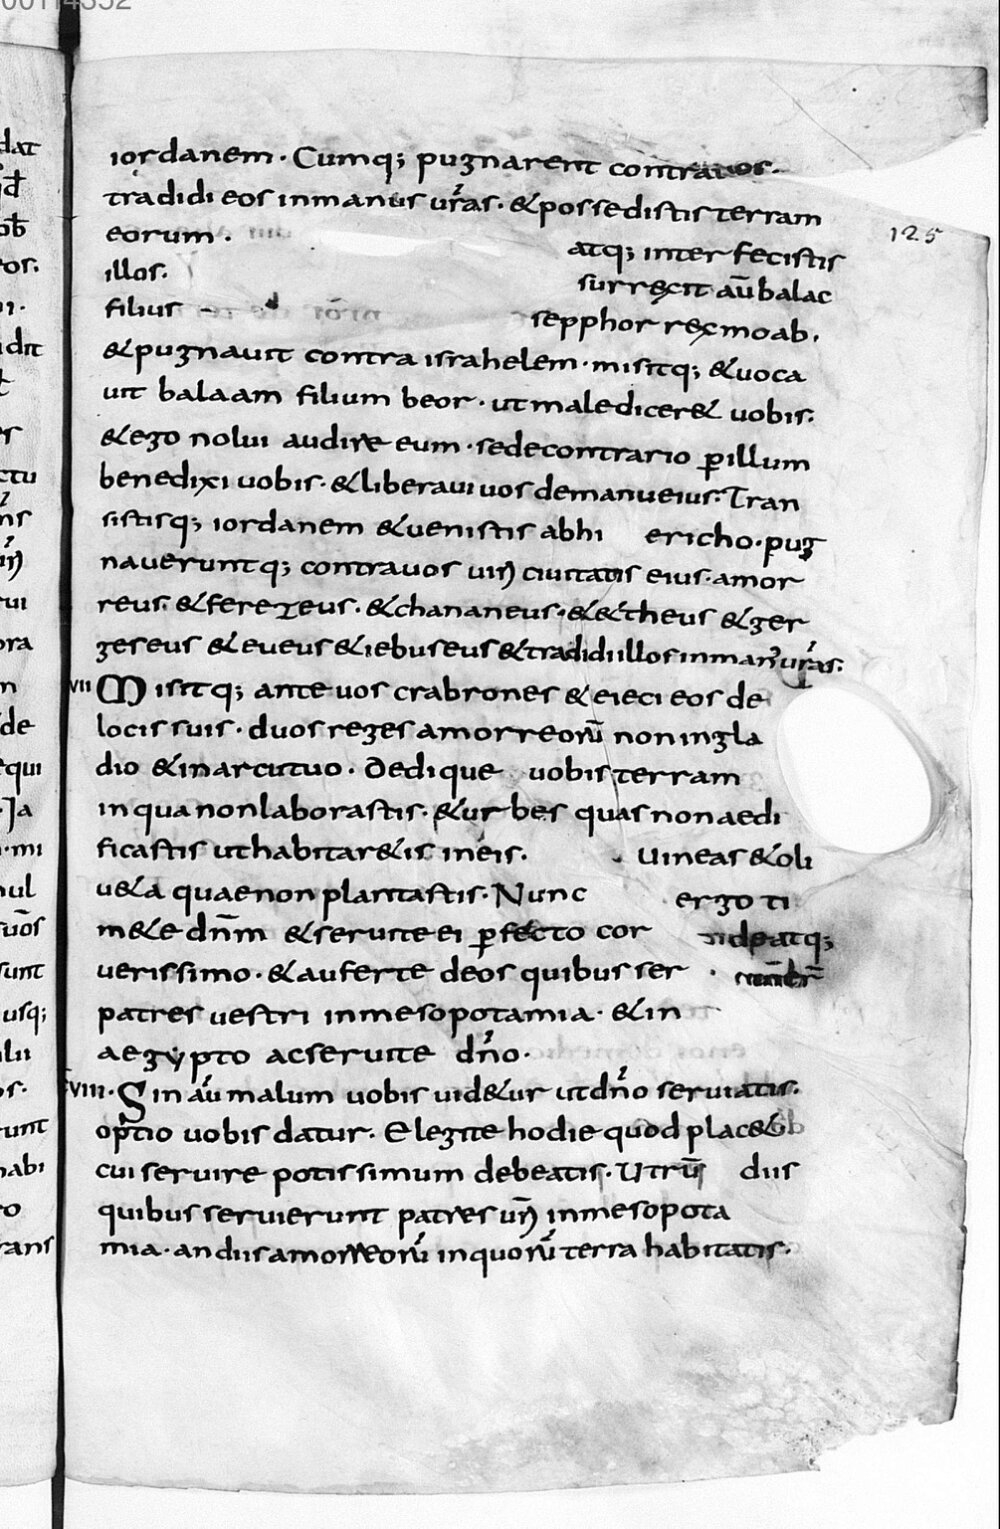 iordanem. Cumq; pugnarent contra uos.
tradidi eos inmanus ur̄as. &possedistis terram
eorum. atq; inter fecistis
illos. surrexit aū balac
filius sepphor rex moab.
&pugnauit contra israhelem. misitq; &uoca
uit balaam filium beor. ut maledicer& uobis.
&ego nolui audire eum. sedecontrario p̱illum
benedixi uobis. &liberaui uos demanueius. Tran
sistisq; iordanem &uenistis abhi ericho. pug
naueruntq; contrauos uiri ciuitatis eius. amor
reus. &ferezeus. &chananeus. &&theus &ger
geseus &eueus &iebuseus &tradidi illos inman' ur̄as.
VII Misitq; ante uos crabrones &eieci eos de
locis suis. duos reges amorreorū non ingla
dio &inarcutuo. Dedique uobis terram
inqua nonlaborastis. &urbes quas nonaedi
ficastis uthabitar&is ineis. uineas &oli
u&a quaenon plantastis. Nunc ergo ti
m&e dn̄m &seruite ei p̱fecto cor
uerissimo. &auferte deos quibus ser
patres uestri inmesopotamia. &in
aegypto acseruite dn̄o.
VIII. Sin aū malum uobis uid&ur utdn̄o seruiatis.
optio uobis datur. Elegite hodie quod plac&
cui seruire potissimum debeatis. Utrū diis
quibus seruierunt patres ur̄i inmesopota
mia. an diis amorreorū inquorū terra habitatis.
125